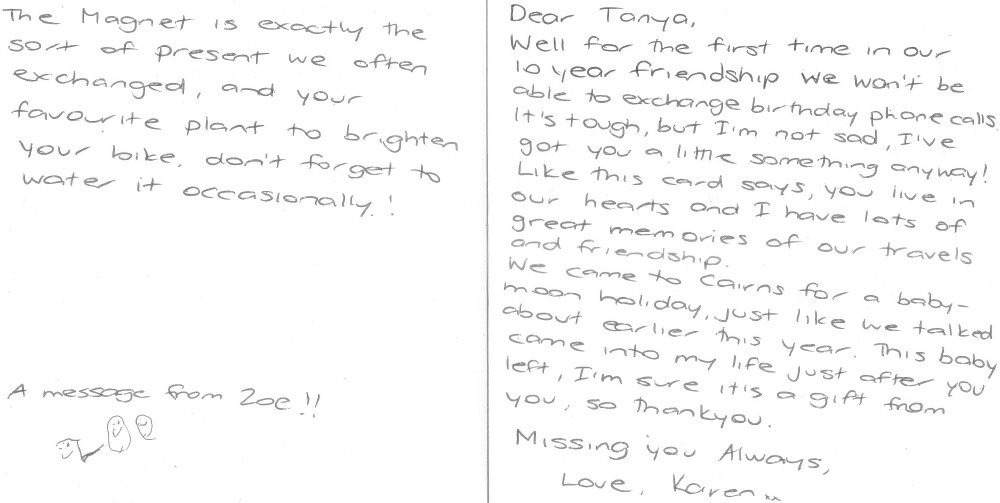 The Magnet is exactly the
sort of present we often
exchanged, and your
favourite plant to brighten
your bike. don't forget to
water it occasionally!
A message from Zoe!!
Dear Tanya,
Well for the first time in our
10 year friendship we won't be
able to exchange birthday phone calls.
It's tough, but I'm not sad, I've
got you a little something anyway!
Like this card says, you live in
our hearts and I have lots of
great memories of our travels
and friendship.
We came to Cairns for a baby-
moon holiday, just like we talked
about earlier this year. This baby
came into my life just after you
left, I'm sure it's a gift from
you, so thankyou.
Missing you Always,
Love, Karen xx